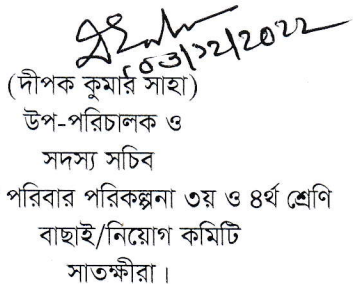 ০৩/১২/২০২২
(দীপক কুমার সাহা)
উপ-পরিচালক ও
সদস্য সচিব
পরিবার পরিকল্পনা ৩য় ও ৪র্থ শ্রেণি
বাছাই/নিয়োগ কমিটি
সাতক্ষীরা।